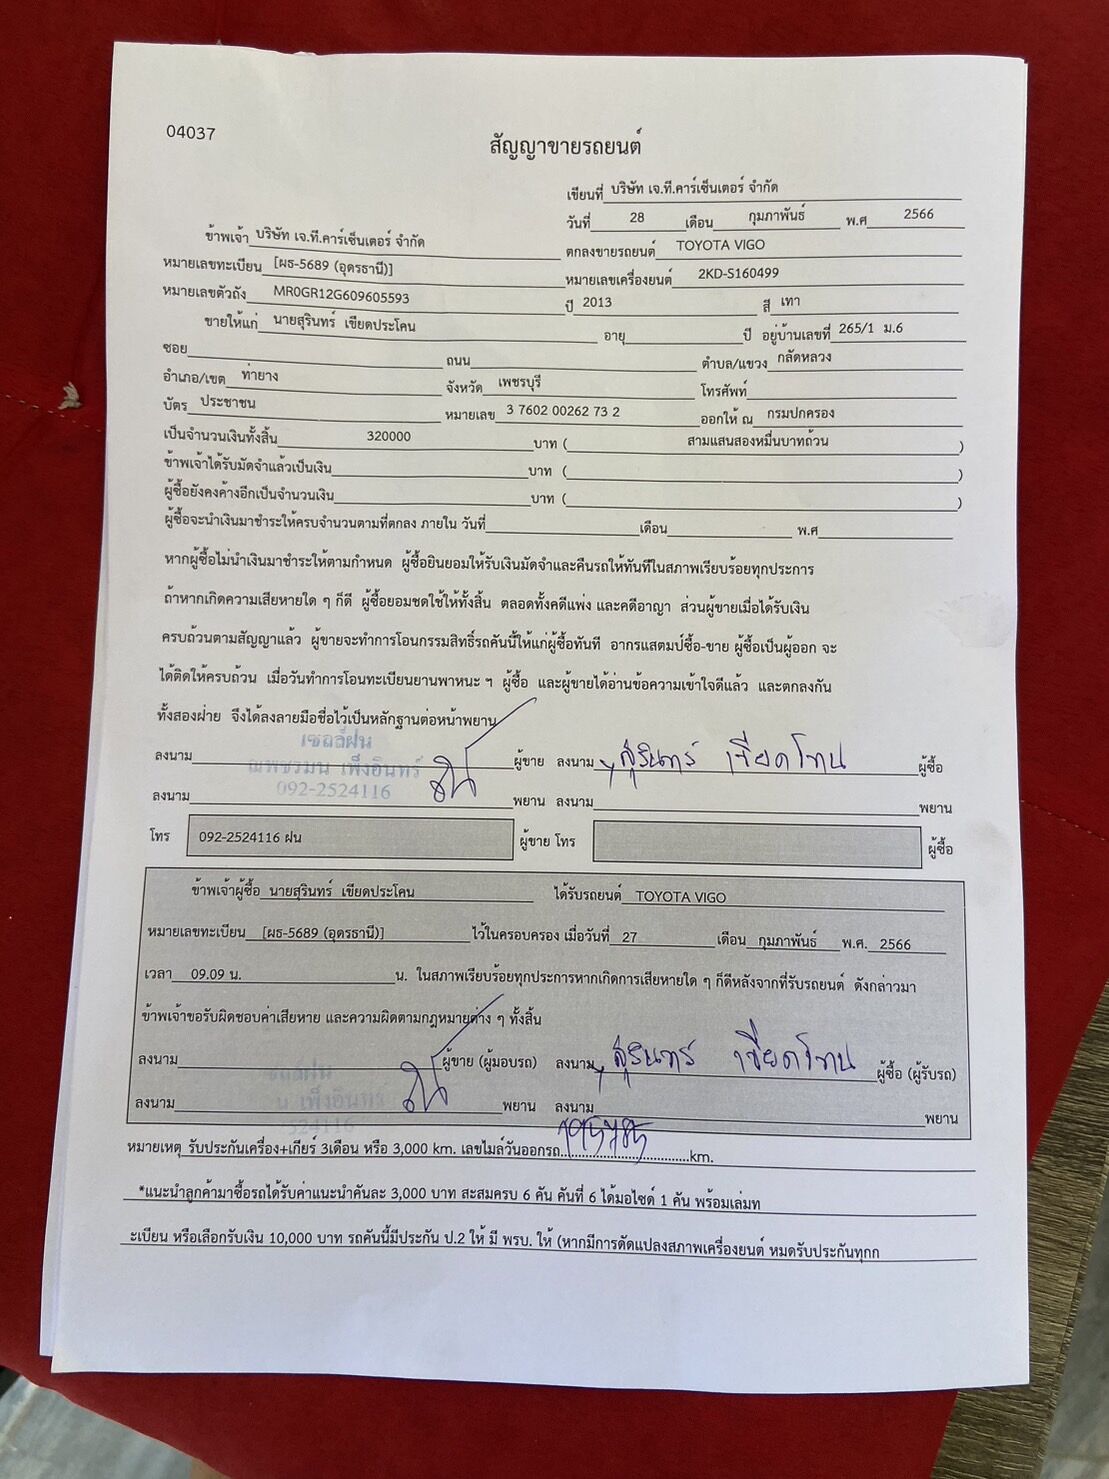 04037
สัญญาขายรถยนต์
เขียนที่ บริษัท เจ.ที.คาร์เซ็นเตอร์ จำกัด
วันที่ 28 เดือน กุมภาพันธ์ พ.ศ 2566
ข้าพเจ้า บริษัท เจ.ที.คาร์เซ็นเตอร์ จำกัด ตกลงขายรถยนต์ TOYOTA VIGO
หมายเลขทะเบียน [ผธ-5689 (อุดรธานี)] หมายเลขเครื่องยนต์ 2KD-S160499
หมายเลขตัวถัง MR0GR12G609605593 ปี 2013 สี เทา
ขายให้แก่ นายสุรินทร์ เขียดประโคน อายุ ปี อยู่บ้านเลขที่ 265/1 ม.6
ซอย ถนน ตำบล/แขวง กลัดหลวง
อำเภอ/เขต ท่ายาง จังหวัด เพชรบุรี โทรศัพท์
บัตร ประชาชน หมายเลข 3 7602 00262 73 2 ออกให้ ณ กรมปกครอง
เป็นจำนวนเงินทั้งสิ้น 320000 บาท ( สามแสนสองหมื่นบาทถ้วน )
ข้าพเจ้าได้รับมัดจำแล้วเป็นเงิน บาท ( )
ผู้ซื้อยังคงค้างอีกเป็นจำนวนเงิน บาท ( )
ผู้ซื้อจะนำเงินมาชำระให้ครบจำนวนตามที่ตกลง ภายใน วันที่ เดือน พ.ศ
หากผู้ซื้อไม่นำเงินมาชำระให้ตามกำหนด ผู้ซื้อยินยอมให้รับเงินมัดจำและคืนรถให้ทันทีในสภาพเรียบร้อยทุกประการ
ถ้าหากเกิดความเสียหายใด ๆ ก็ดี ผู้ซื้อยอมชดใช้ให้ทั้งสิ้น ตลอดทั้งคดีแพ่ง และคดีอาญา ส่วนผู้ขายเมื่อได้รับเงิน
ครบถ้วนตามสัญญาแล้ว ผู้ขายจะทำการโอนกรรมสิทธิ์รถคันนี้ให้แก่ผู้ซื้อทันที อากรแสตมป์ซื้อ-ขาย ผู้ซื้อเป็นผู้ออก จะ
ได้ติดให้ครบถ้วน เมื่อวันทำการโอนทะเบียนยานพาหนะ ฯ ผู้ซื้อ และผู้ขายได้อ่านข้อความเข้าใจดีแล้ว และตกลงกัน
ทั้งสองฝ่าย จึงได้ลงลายมือชื่อไว้เป็นหลักฐานต่อหน้าพยาน
เซลล์ฝน
ลงนาม ผู้ขาย ลงนาม สุรินทร์ เขียดโคน ผู้ซื้อ
ณพชรมน เพ็งอินทร์
092-2524116
ลงนาม พยาน ลงนาม พยาน
โทร 092-2524116 ฝน ผู้ขาย โทร ผู้ซื้อ
ข้าพเจ้าผู้ซื้อ นายสุรินทร์ เขียดประโคน ได้รับรถยนต์ TOYOTA VIGO
หมายเลขทะเบียน [ผธ-5689 (อุดรธานี)] ไว้ในครอบครอง เมื่อวันที่ 27 เดือน กุมภาพันธ์ พ.ศ. 2566
เวลา 09.09 น. น. ในสภาพเรียบร้อยทุกประการหากเกิดการเสียหายใด ๆ ก็ดีหลังจากที่รับรถยนต์ ดังกล่าวมา
ข้าพเจ้าขอรับผิดชอบค่าเสียหาย และความผิดตามกฎหมายต่าง ๆ ทั้งสิ้น
ลงนาม ผู้ขาย (ผู้มอบรถ) ลงนาม สุรินทร์ เขียดโคน ผู้ซื้อ (ผู้รับรถ)
ลงนาม พยาน ลงนาม พยาน
หมายเหตุ รับประกันเครื่อง+เกียร์ 3เดือน หรือ 3,000 km. เลขไมล์วันออกรถ..............................km.
*แนะนำลูกค้ามาซื้อรถได้รับค่าแนะนำคันละ 3,000 บาท สะสมครบ 6 คัน คันที่ 6 ได้มอไซด์ 1 คัน พร้อมเล่มท
ะเบียน หรือเลือกรับเงิน 10,000 บาท รถคันนี้มีประกัน ป.2 ให้ มี พรบ. ให้ (หากมีการดัดแปลงสภาพเครื่องยนต์ หมดรับประกันทุกก